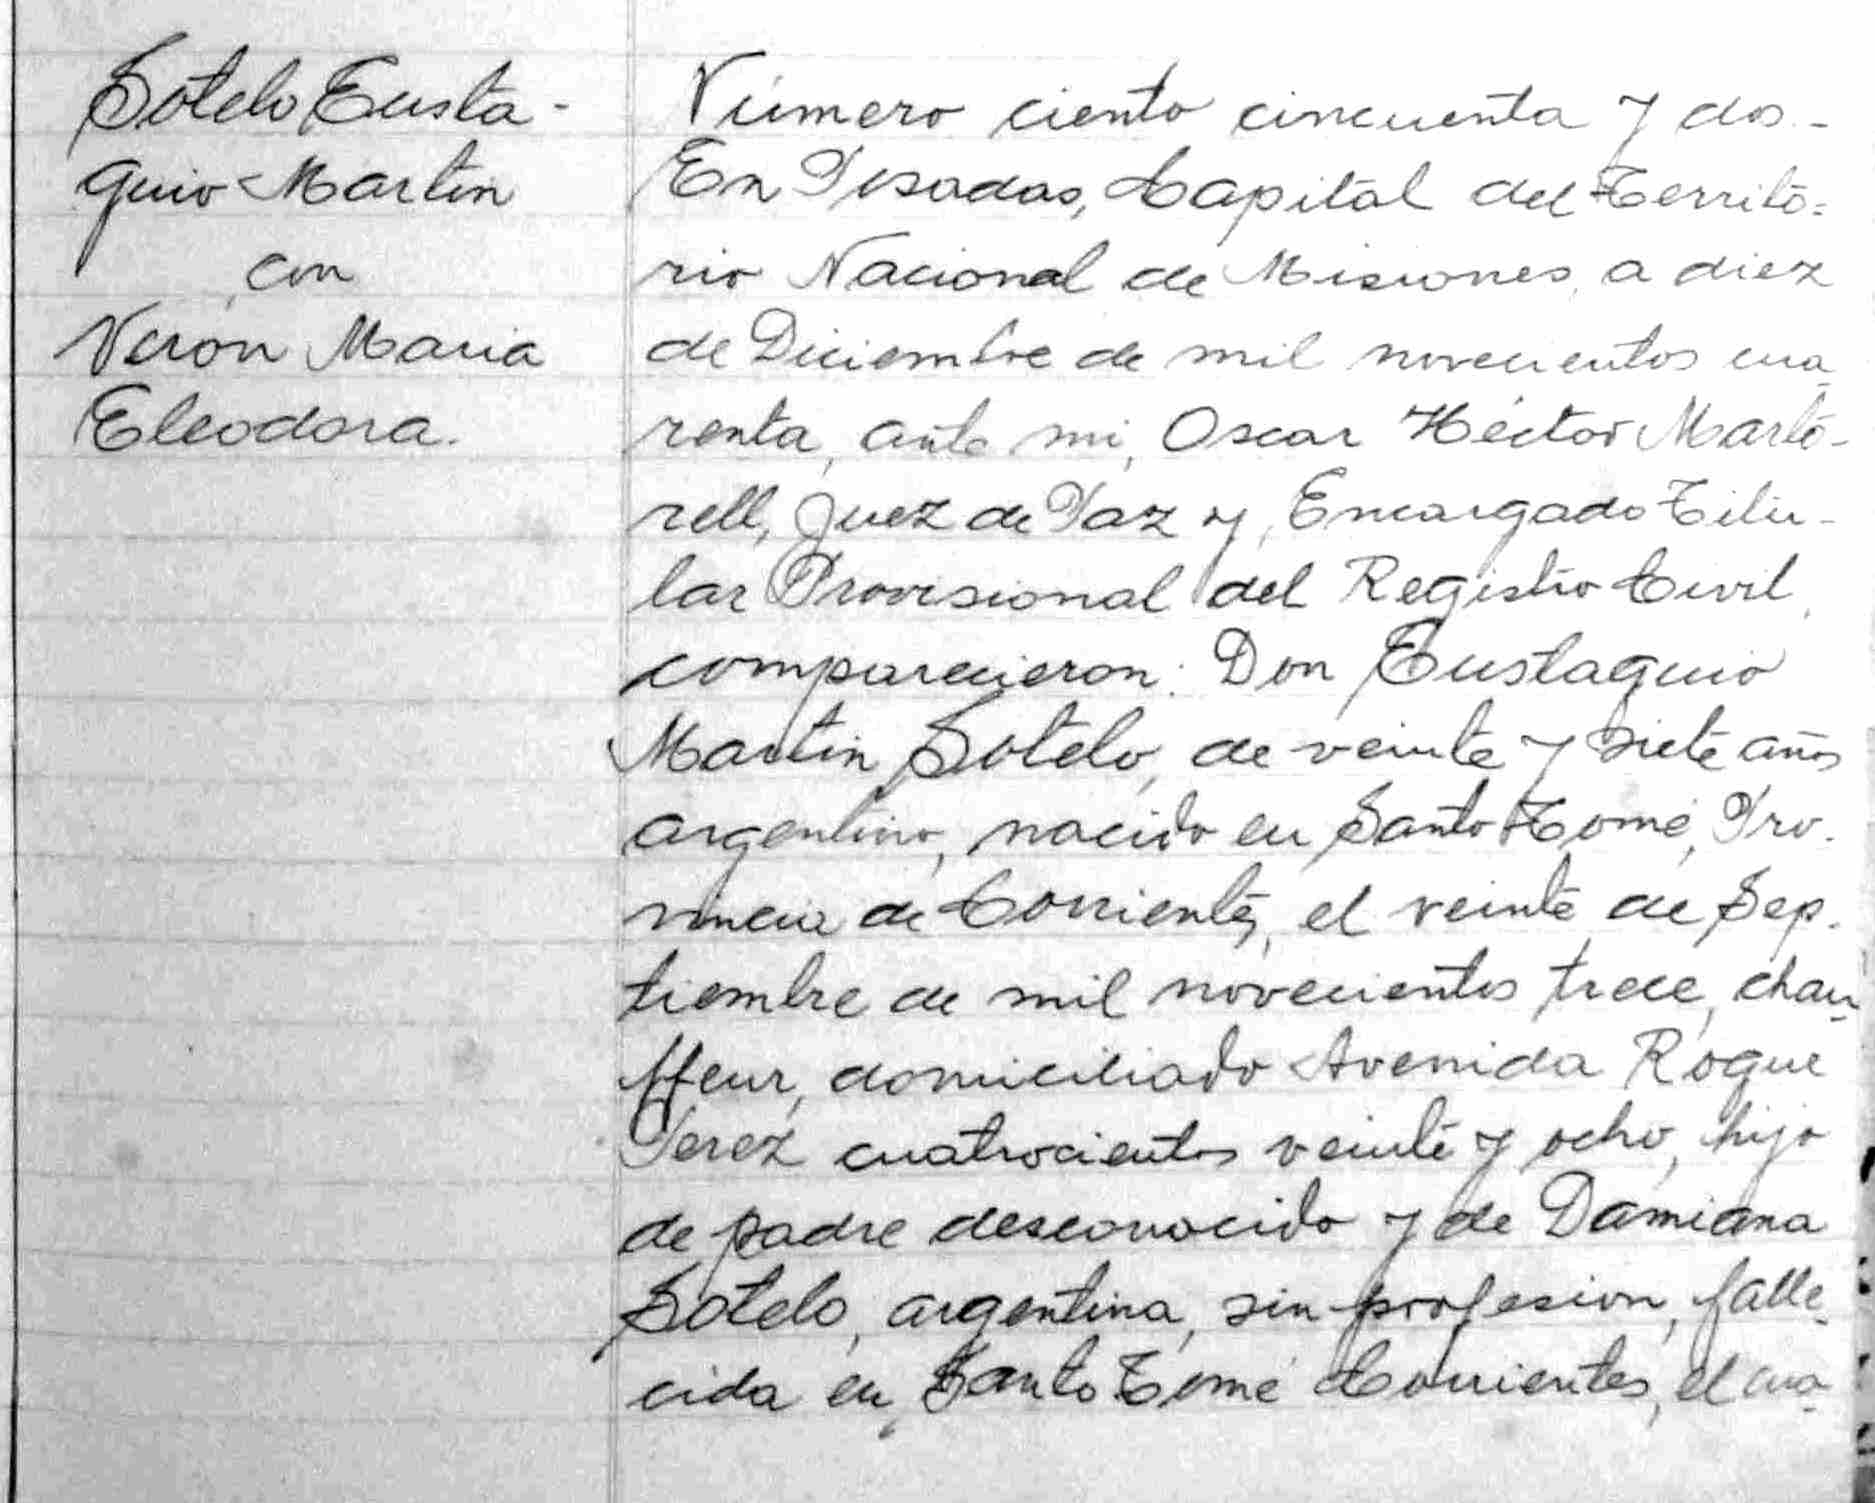 Sotelo Eusta-
quio Martin
con
Veron Maria
Eleodora.
Número ciento cincuenta y dos.-
En Posadas, Capital del Territo=
rio Nacional de Misiones, a diez
de Diciembre de mil novecientos cua-
renta, ante mi, Oscar Héctor Marto-
rell, Juez de Paz y, Encargado Titu-
lar Provisional del Registro Civil,
comparecieron: Don Eustaquio
Martin Sotelo, de veinte y siete años
argentino, nacido en Santo Tomé, Pro-
vincia de Corrientes, el veinte de Sep-
tiembre de mil novecientos trece, chau-
ffeur, domiciliado Avenida Roque
Perez cuatrocientos veinte y ocho, hijo
de padre desconocido y de Damiana
Sotelo, argentina, sin profesion, falle-
cida en Santo Tomé Corrientes, el cua-